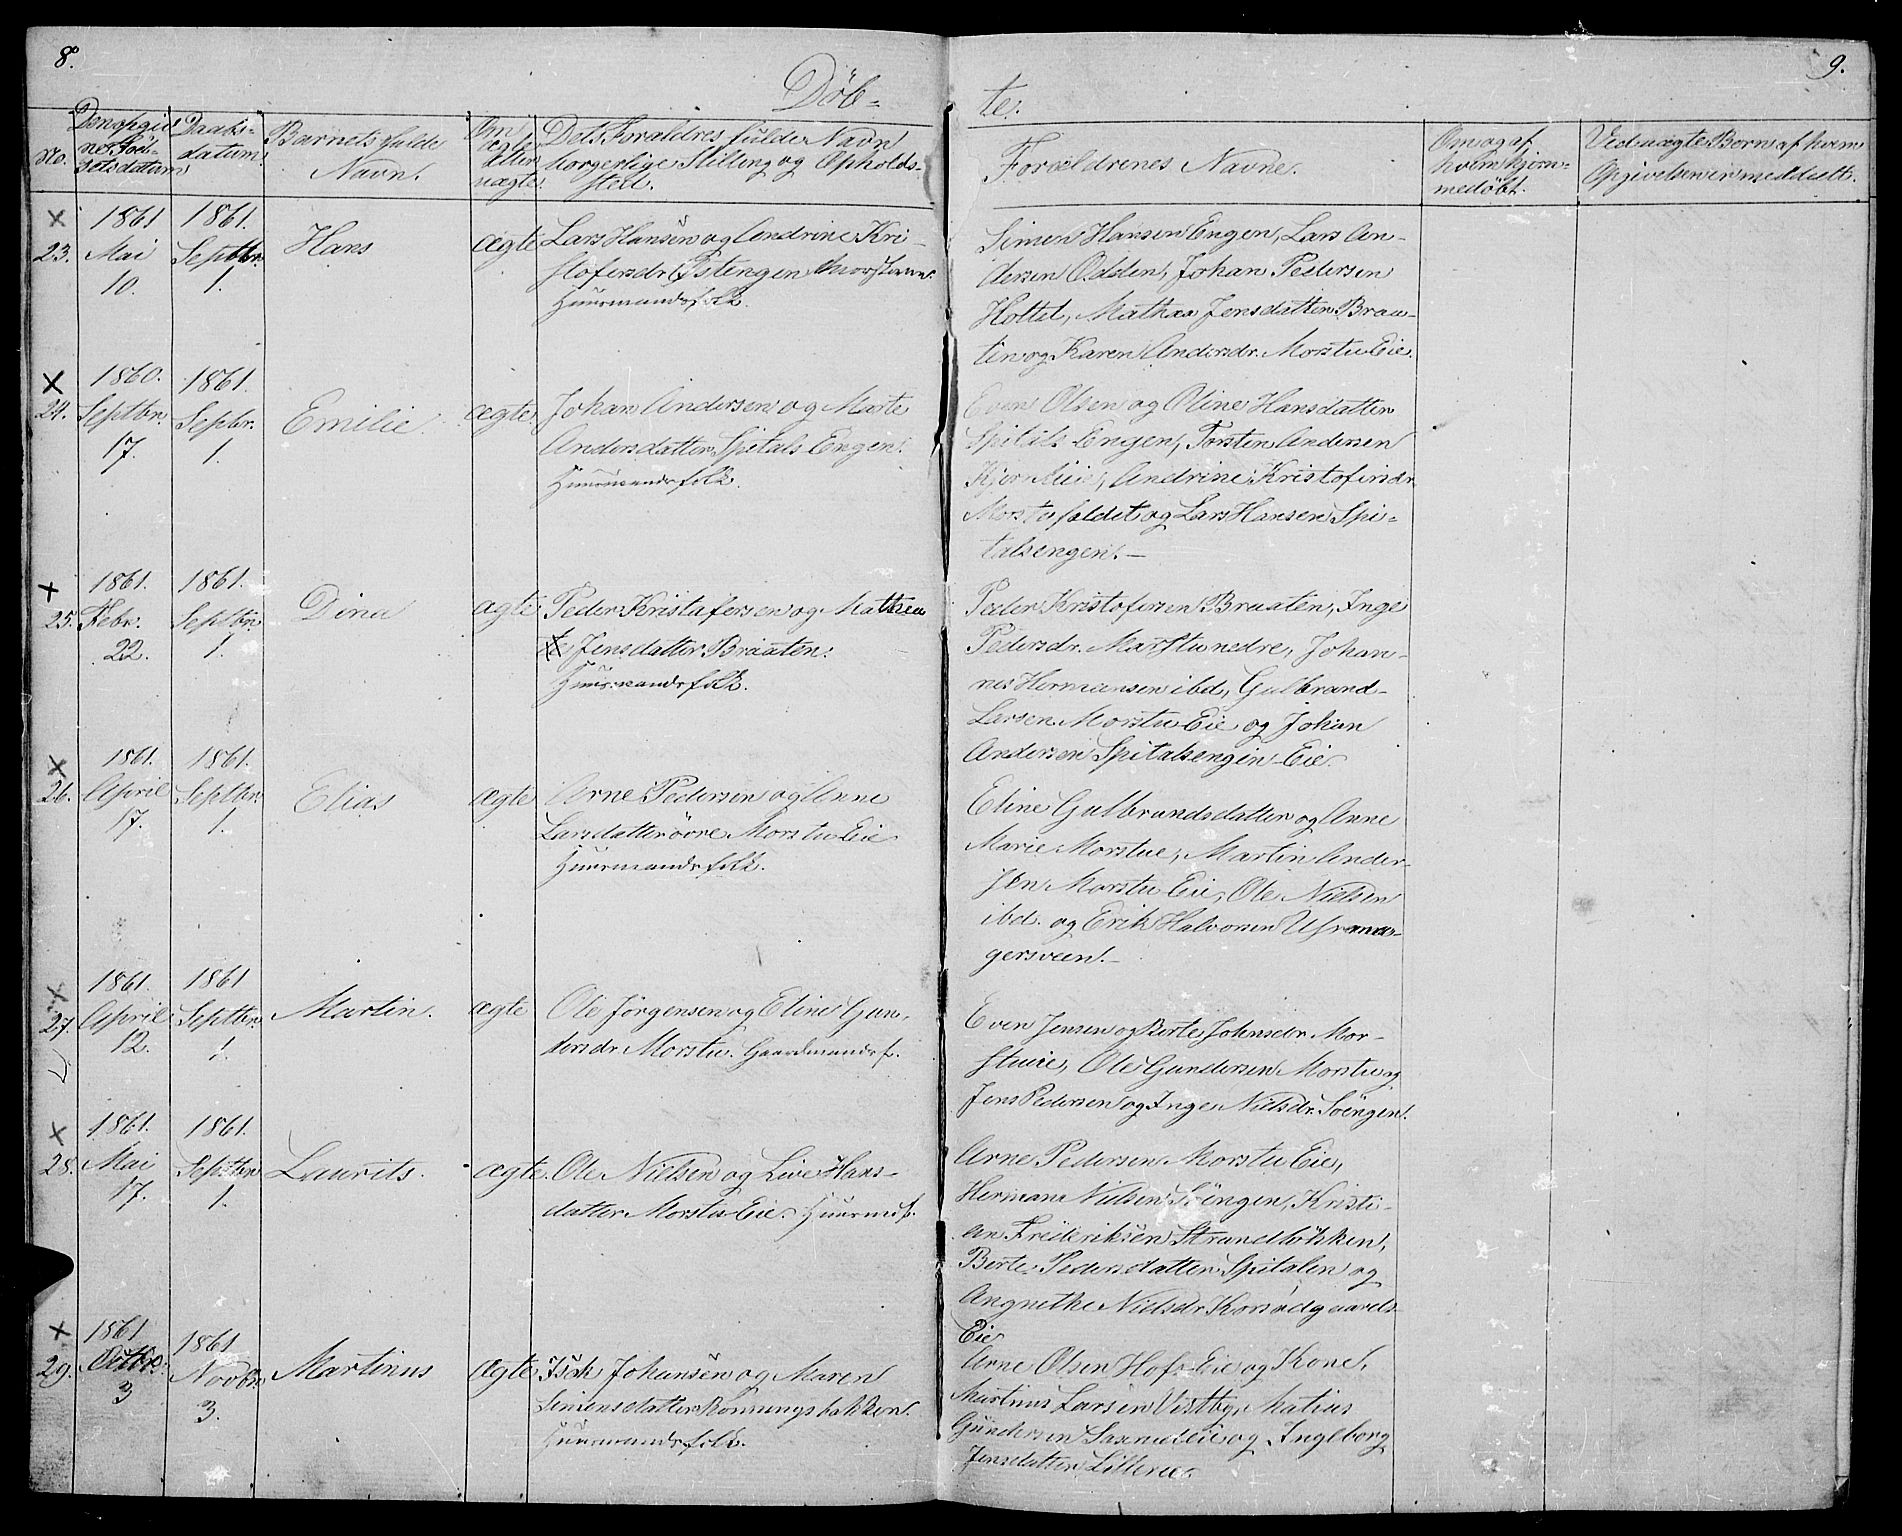 8.
9.
Döb-
te.
No.
Den opgiv-
ne Föd-
selsdatum
Daabs-
datum
Barnets fulde
Navn.
Om
ægte
eller
uægte
Dets Forældres fulde Navn
borgerlige Stilling og Opholds-
sted.
Forældrenes Navne.
Om og af
hvem hjem-
medöbt.
Ved uægte Börn af hvem
Opgivelsen er meddelt.
23.
1861
Mai
10.
1861.
Septbr.
1.
Hans
ægte
Lars Hansen og Andrine Kri-
stofersdr. Östengen
Huusmandsfolk.
Simen Hansen Engen, Lars An-
dersen Odden, Johan Pedersen
Holtet, Mathea Jensdatter Braa-
ten og Karen Andersdr. Morstu Eie.
24.
1860.
Septbr.
17.
1861.
Sepbr.
1.
Emilie
ægte
Johan Andersen og Marte
Andersdatter Spitals Engen.
Huusmandsfolk.
Even Olsen og Oline Hansdatter
Spitals Engen, Torsten Andersen
Andrine Kristofersdr
Morstufaldet og Lars Hansen Spi-
talsengen.
25.
1861.
Febr.
22.
1861.
Septbr.
1.
Dina
ægte
Peder Kristofersen og Mathea
Jensdatter Braaten.
Huusmandsfolk.
Peder Kristofersen Braaten, Inge
Pedersdr. Morstu nedre, Johan-
nes Hermansen ibd, Gulbrand
Larsen Morstu Eie og Johan
Andersen Spitalsengen Eie.
26.
1861.
April
17.
1861.
Septbr.
1.
Elias
ægte
Arne Pedersen og Anne
Larsdatter övre Morstu Eie
Huusmandsfolk.
Eline Gulbrandsdatter og Anne
Marie Morstue, Martin Ander-
sen Morstu Eie, Ole Nielsen
ibd. og Erik Halvorsen
gersveen.
27.
1861.
April
12.
1861
Septbr.
1.
Martin.
ægte
Ole Jörgensen og Eline Gun-
dersdr. Morstu. Gaardmandsf.
Even Jensen og Berte Johnsdr. Mor-
stueie, Ole Gundersen Morstu og
Jens Pedersen og Inger Nielsdr. Söengen.
28.
1861.
Mai
17.
1861.
Septbr.
1.
Laurits.
ægte.
Ole Nielsen og Live Hans-
datter Morstu Eie. Huusmf.
Arne Pedersen Morstu Eie,
Herman Nielsen Söengen, Kristi-
an Frederiksen Strandlökken,
Berte Pedersdatter Spitalen og
Angnethe Nielsdr. Korsödgaards
Eie
29.
1861
Octbr.
3
1861
Novbr.
3.
Martinus
ægte
Isak Johansen og Maren
Simensdatter Rönningsbakken.
Huusmandsfolk.
Arne Olsen Hofs Eie og Kone,
Martinus Larsen Vestby, Matius
Gundersen og Ingeborg
Jensdatter Lillerud.